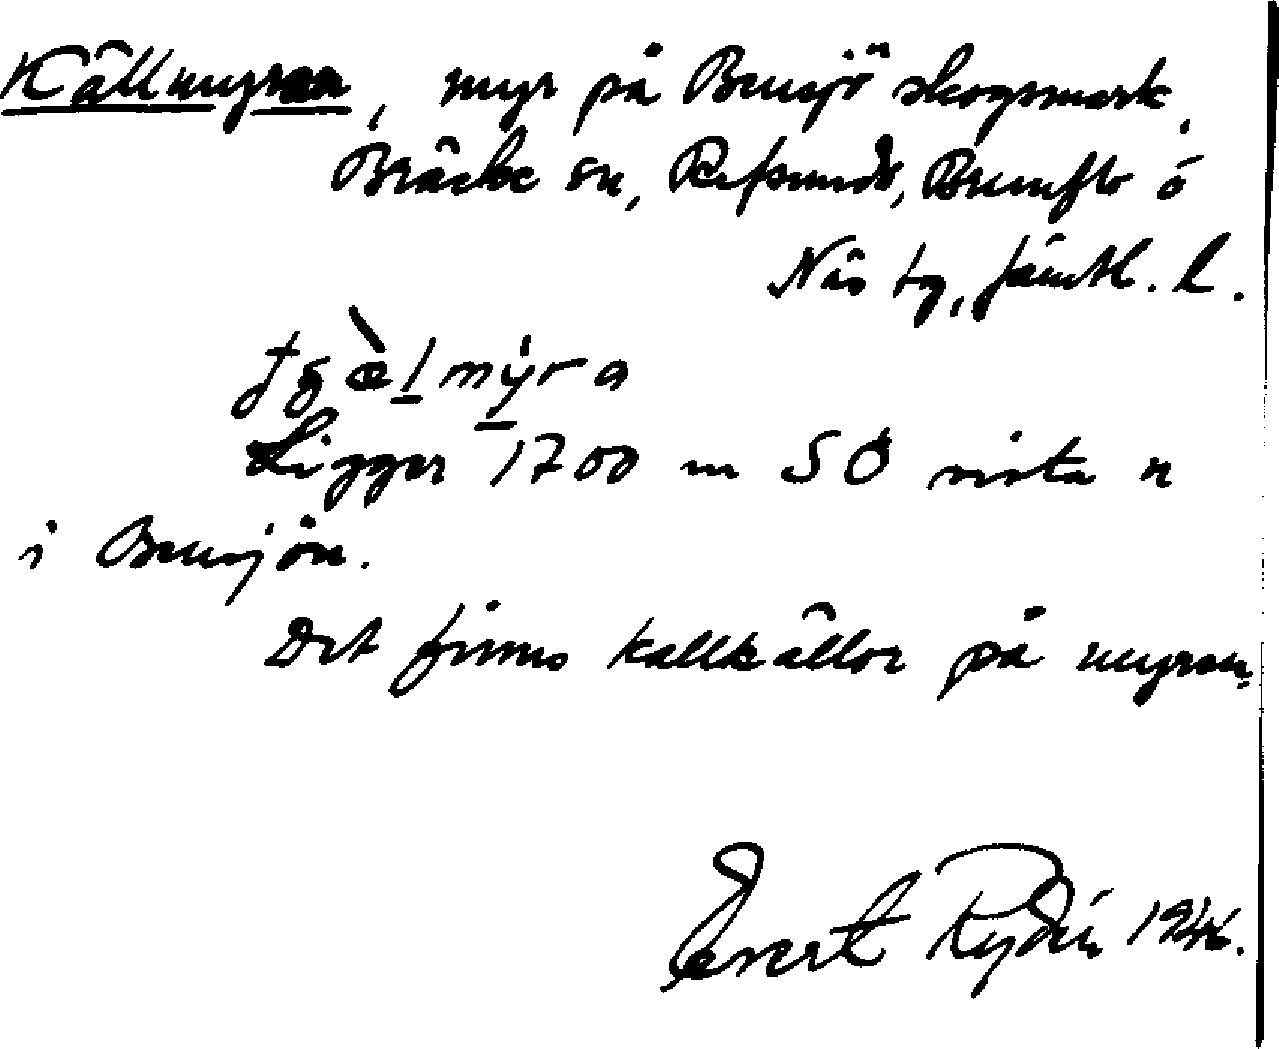 Källmyran, myr på Bensjö skogsmark,
Bräcke sn, Refsunds, Brunflo o
Näs tg, Jämtl. l.
Ligger 1700 m SÖ sista n
i Bensjön.
Det finns kallkällor på myran.
Evert Rydén 1946.